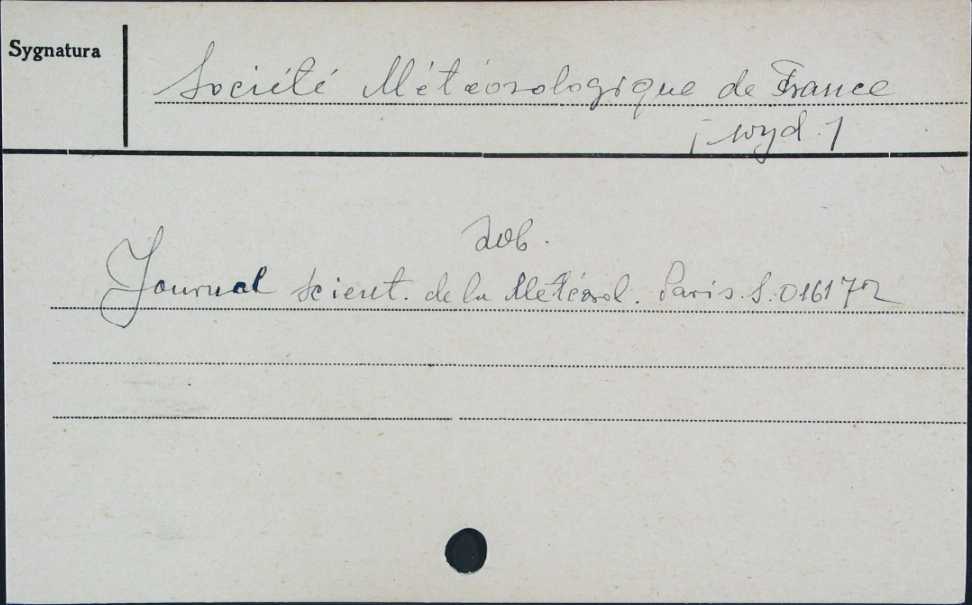 Sygnatura
Société Météorologique de France
[wyd.]
zob.
Journal scient. de la Météorol. Paris. S. 016172